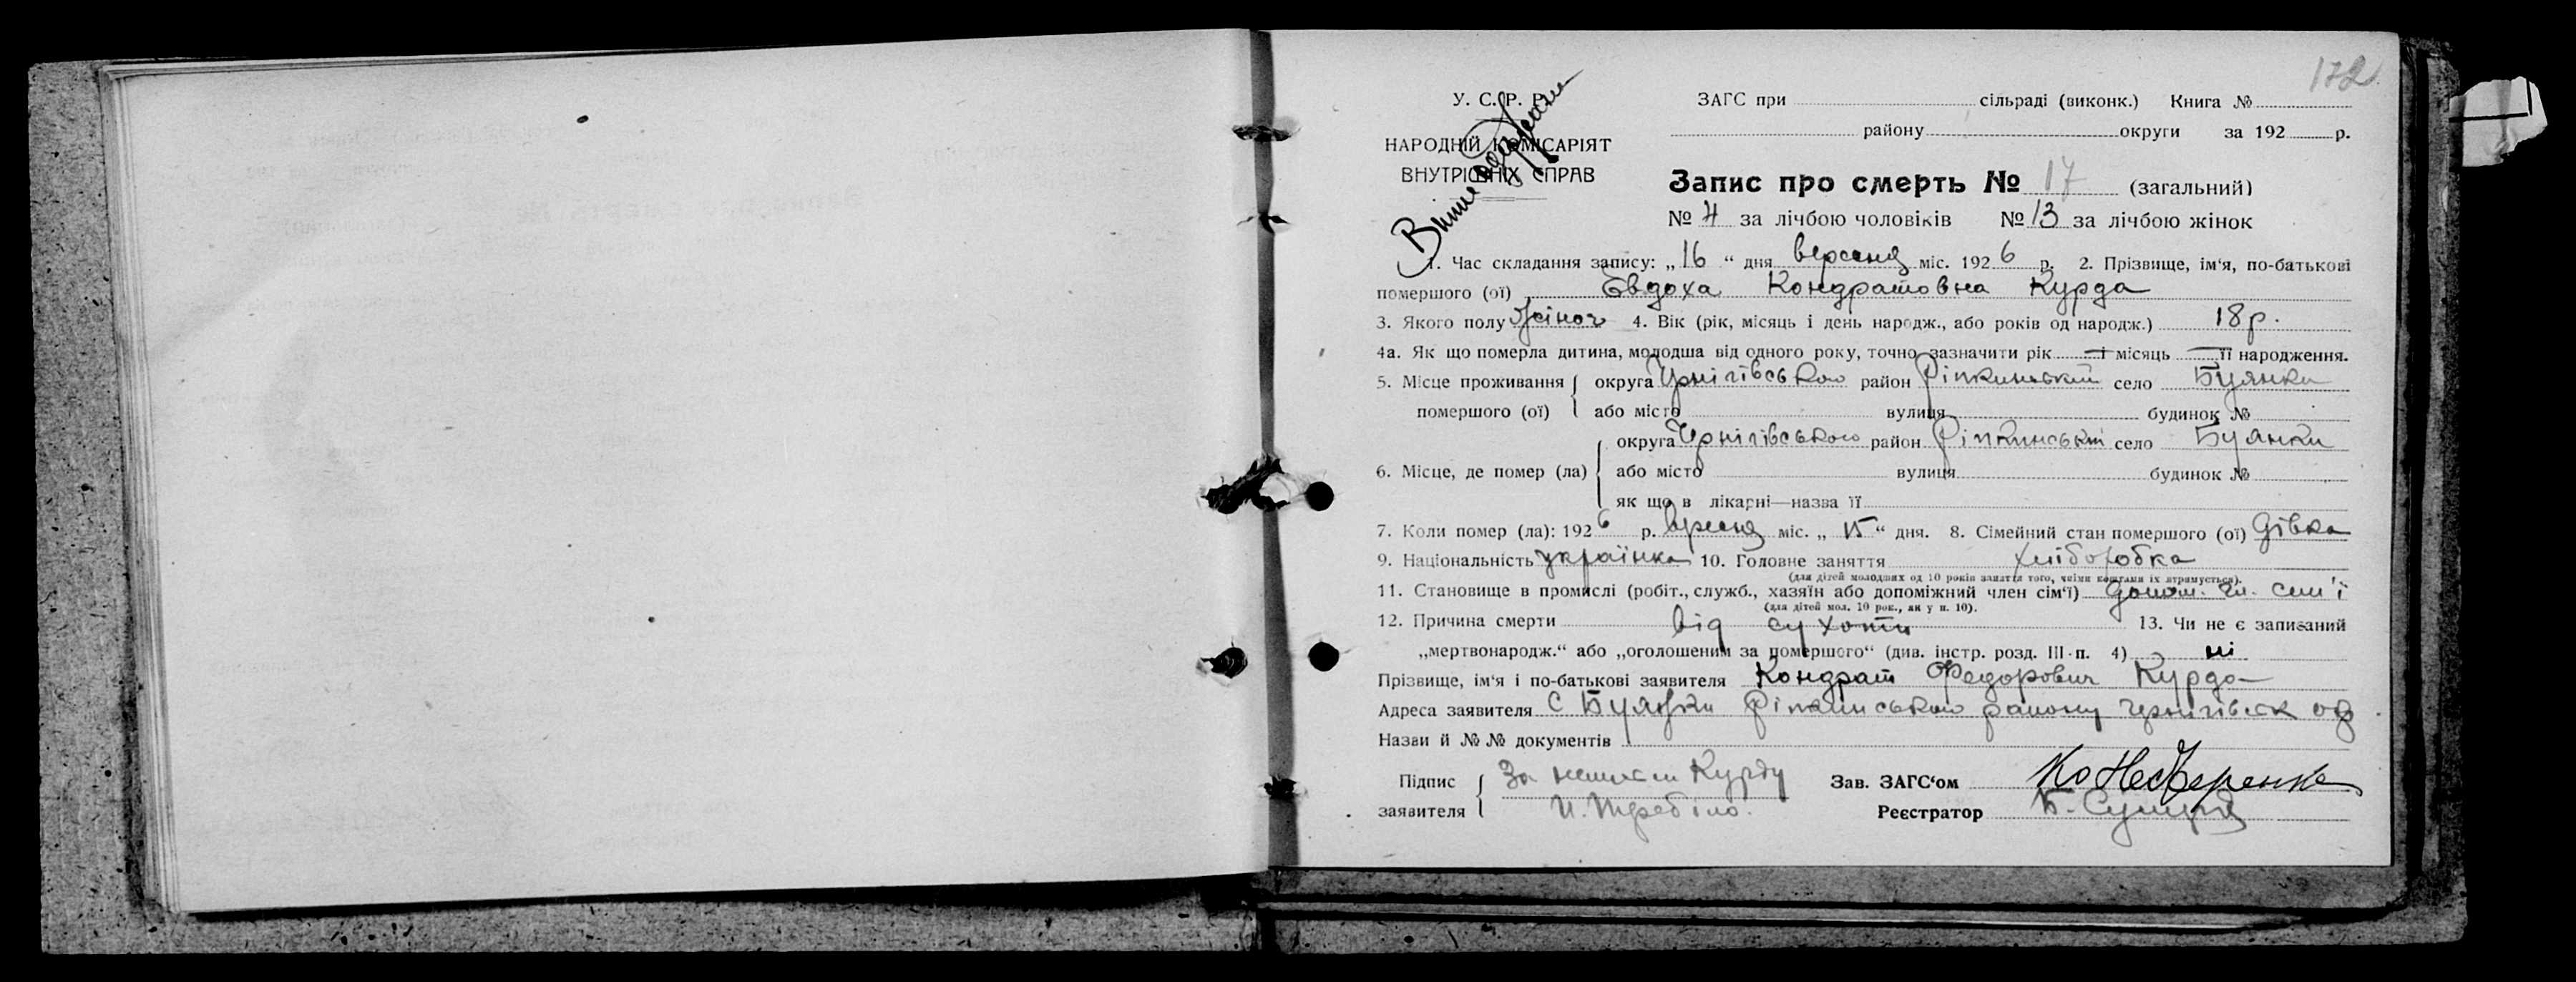 172
У. С. Р. Р.
НАРОДНІЙ КОМІСАРІЯТ
ВНУТРІШНІХ СПРАВ
ЗАГС при сільраді (виконк.) Книга №
району округи за 192 р.
Запис про смерть № 17 (загальний)
№ 4 за лічбою чоловіків № 13 за лічбою жінок
1. Час складання запису: „16“ дня вересня міс. 1926 р. 2. Прізвище, ім'я, по-батькові
помершого (ої) Евдоха Кондратовна Курда
3. Якого полу жіноч 4. Вік (рік, місяць і день народж., або років од народж.) 18 р.
4а. Як що померла дитина, молодша від одного року, точно зазначити рік — і місяць — її народження.
5. Місце проживання округа Чернігівського район Ріпкинський село Буянки
помершого (ої) або місто вулиця будинок №
округа Чернігівського район Ріпкинський село Буянки
6. Місце, де помер (ла) або місто вулиця будинок №
як що в лікарні—назва її
7. Коли помер (ла): 1926 р. вересня міс. „15“ дня. 8. Сімейний стан помершого (ої) дівка
9. Національність українка 10. Головне заняття хліборобка
(для дітей молодших од 10 років заняття того, чиїми коштами їх утримується).
11. Становище в промислі (робіт., служб., хазяїн або допоміжний член сім'ї) допом. чл. сем'ї
(для дітей мол. 10 рок., як у п. 10).
12. Причина смерти від сухоти 13. Чи не є записаний
„мертвонародж.“ або „оголошеним за помершого“ (див. інстр. розд. III п. 4) ні
Прізвище, ім'я і по-батькові заявителя Кондрат Федорович Курда
Адреса заявителя с Буянки Ріпкинського району чернігівск
Назви й №№ документів
Підпис За Курду Зав. ЗАГС'ом
заявителя Реєстратор